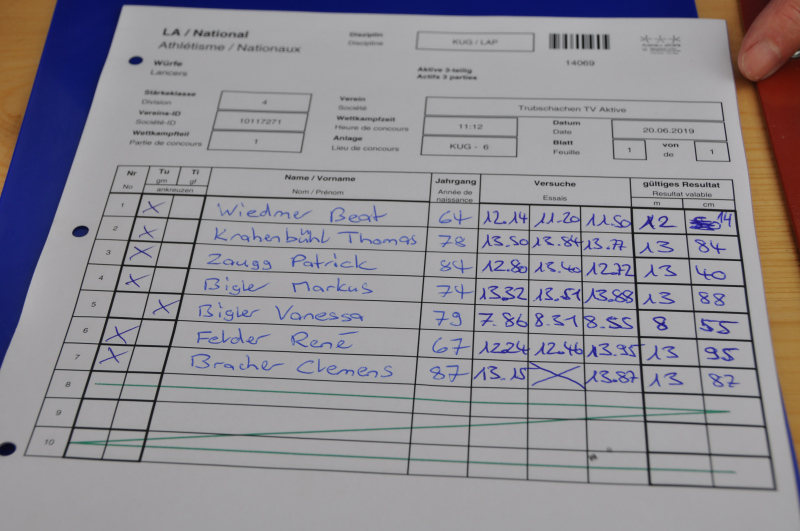 LA / National
Athlétisme / Nationaux
Disziplin
Discipline
KUG / LAP
14069
Würfe
Lancers
Aktive 3-teilig
Actifs 3 parties
Stärkeklasse
Division
4
Verein
Société
Trubschachen TV Aktive
Vereins-ID
Société-ID
10117271
Wettkampfzeit
Heure de concours
11:12
Datum
Date
20.06.2019
Wettkampfteil
Partie de concours
1
Anlage
Lieu de concours
KUG - 6
Blatt
Feuille
1
von
de
1
Nr Tu Ti Name / Vorname Jahrgang Versuche gültiges Resultat
No gm gf Nom / Prénom Année de naissance Essais Resultat valable
ankreuzen m cm
1 X Wiedmer Beat 64 12.14 11.20 11.50 12 14
2 X Krähenbühl Thomas 78 13.50 13.84 13.77 13 84
3 X Zaugg Patrick 84 12.80 13.40 12.72 13 40
4 X Bigler Markus 74 13.32 13.51 13.88 13 88
5 X Bigler Vanessa 79 7.86 8.31 8.55 8 55
6 X Felder René 67 12.24 12.46 13.95 13 95
7 X Bracher Clemens 87 13.15 X 13.87 13 87
8
9
10